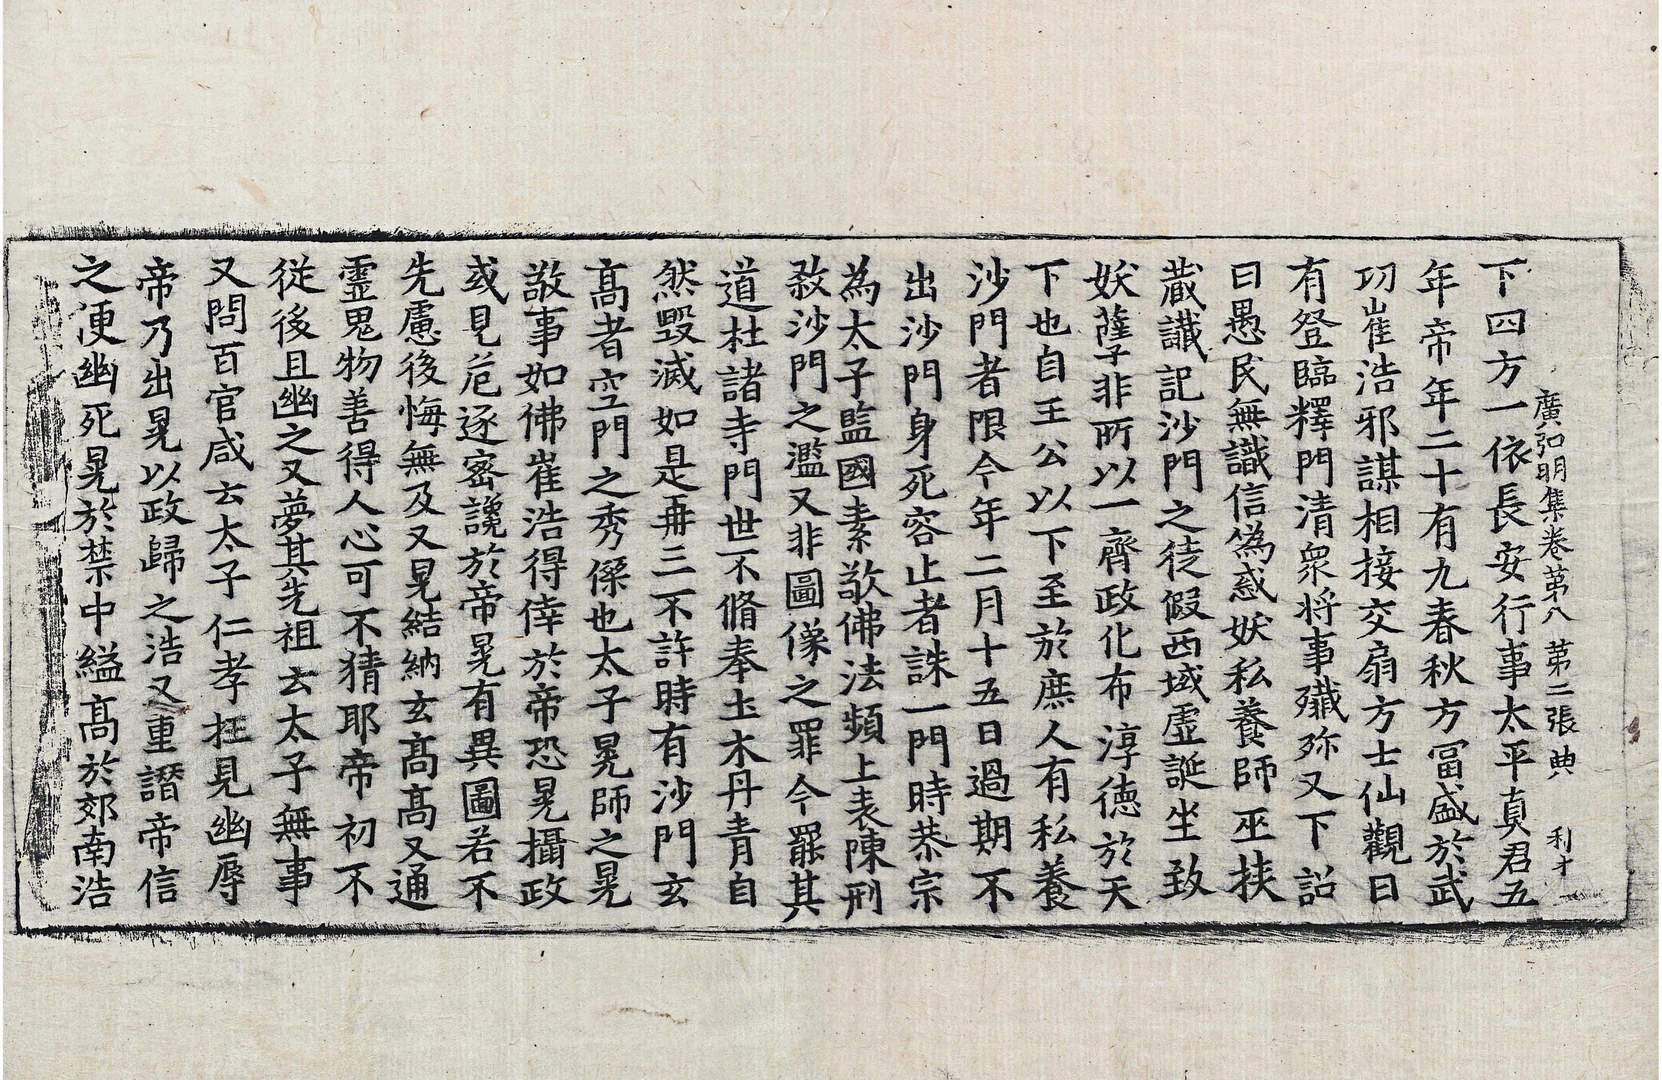 廣弘明集卷第八　第二張　典　利才
下四方一依長安行事太平真君五
年帝年二十有九春秋方冨盛於武
功崔浩邪謀相接交扇方士仙觀日
有登臨釋門清衆将事殲殄又下詔
曰愚民無識信偽惑妖私養師巫挟
蔵讖記沙門之徒假西域虛誕坐致
妖孽非所以一齊政化布淳徳於天
下也自王公以下至於庶人有私養
沙門者限今年二月十五日過期不
出沙門身死容止者誅一門時恭宗
為太子監國素敬佛法頻上表陳刑
殺沙門之濫又非圖像之罪今罷其
道杜諸寺門世不脩奉土木丹青自
然毀滅如是再三不許時有沙門玄
髙者空門之秀傑也太子晃師之晃
敬事如佛崔浩得倖於帝恐晃攝政
或見危逐密讒於帝晃有異圖若不
先慮後悔無及又晃結納玄髙髙又通
靈鬼物善得人心可不猜耶帝初不
従後且幽之又夢其先祖云太子無事
又問百官咸云太子仁孝枉見幽辱
帝乃出晃以政歸之浩又重譖帝信
之便幽死晃於禁中縊髙於郊南浩